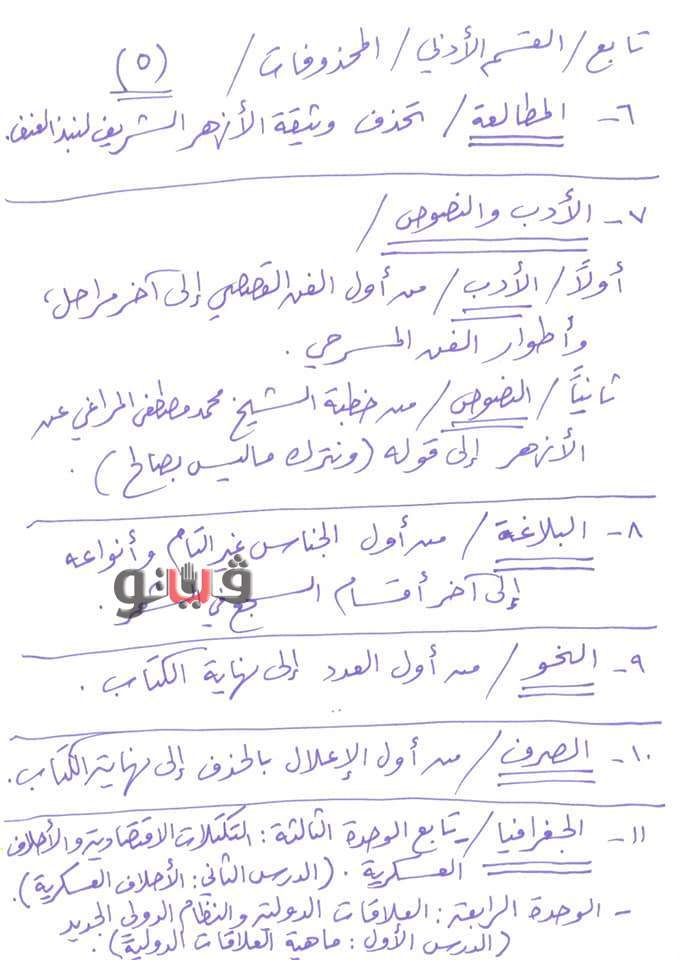 تابع / القسم الأدبي / المحذوفات / (٥)
٦- المطالعة / تحذف وثيقة الأزهر الشريف لنبذ العنف.
٧- الأدب والنصوص /
أولاً / الأدب / من أول الفن القصصي إلى آخر مراحل،
وأطوار الفن المسرحي .
ثانياً / النصوص / من خطبة الشيخ محمد مصطفى المراغي عن
الأزهر إلى قوله (ونترك ماليس بصالح) .
٨- البلاغة / من أول الجناس غير التام وأنواعه
إلى آخر أقسام السجع في .
ڤيتو
٩- النحو / من أول العدد إلى نهاية الكتاب .
١٠- الصرف / من أول الإعلال بالحذف إلى نهاية الكتاب.
١١- الجغرافيا / - تابع الوحدة الثالثة : التكتلات الاقتصادية والأحلاف
العسكرية . (الدرس الثاني : الأحلاف العسكرية).
- الوحدة الرابعة : العلاقات الدولية والنظام الدولي الجديد
(الدرس الأول : ماهية العلاقات الدولية) .